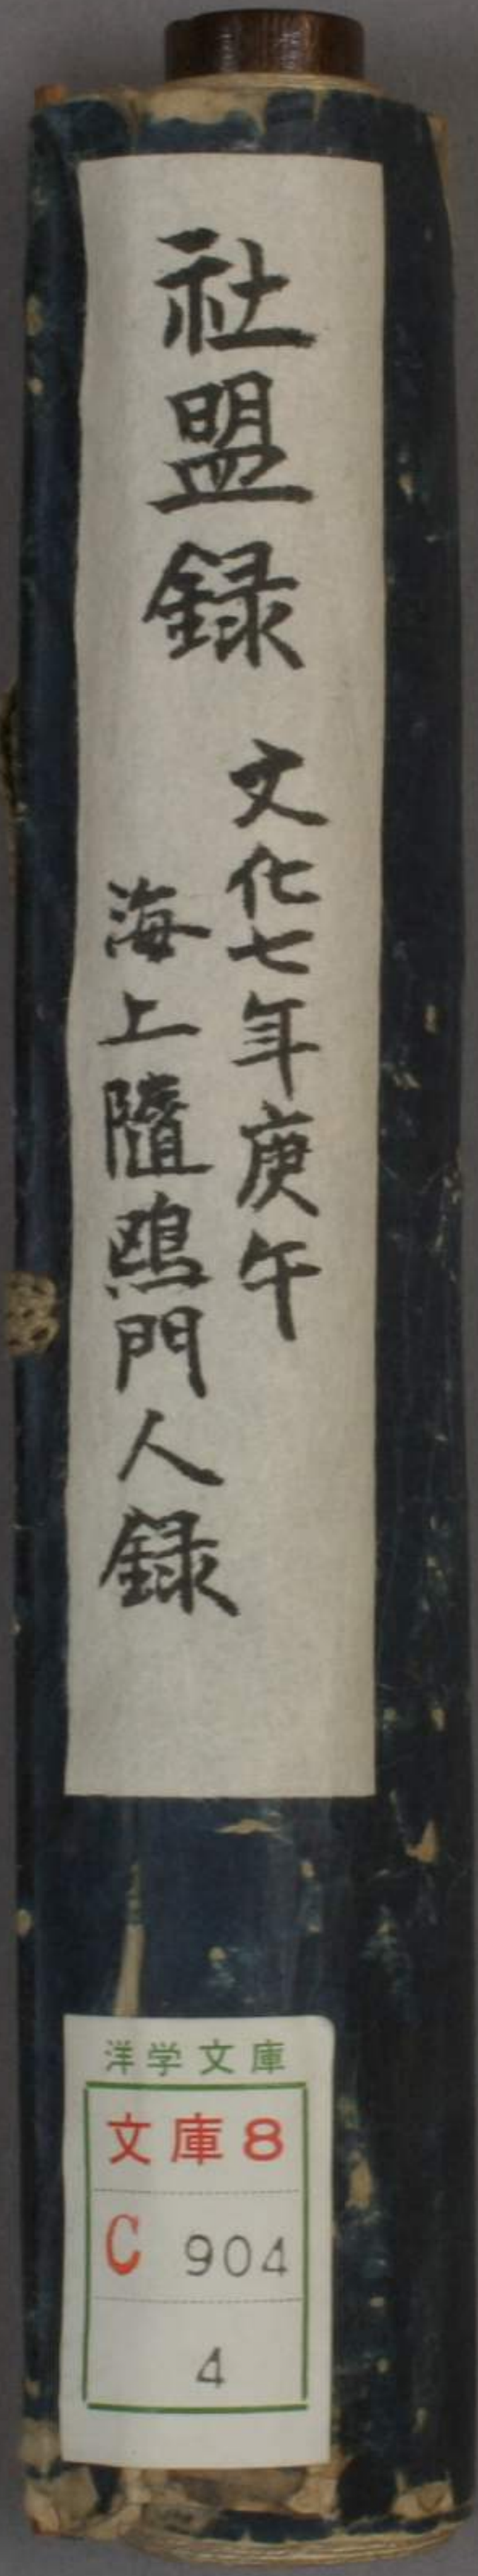 社盟録
文化七年庚午
海上隨鷗門人録
洋学文庫
文庫8
C 904
4